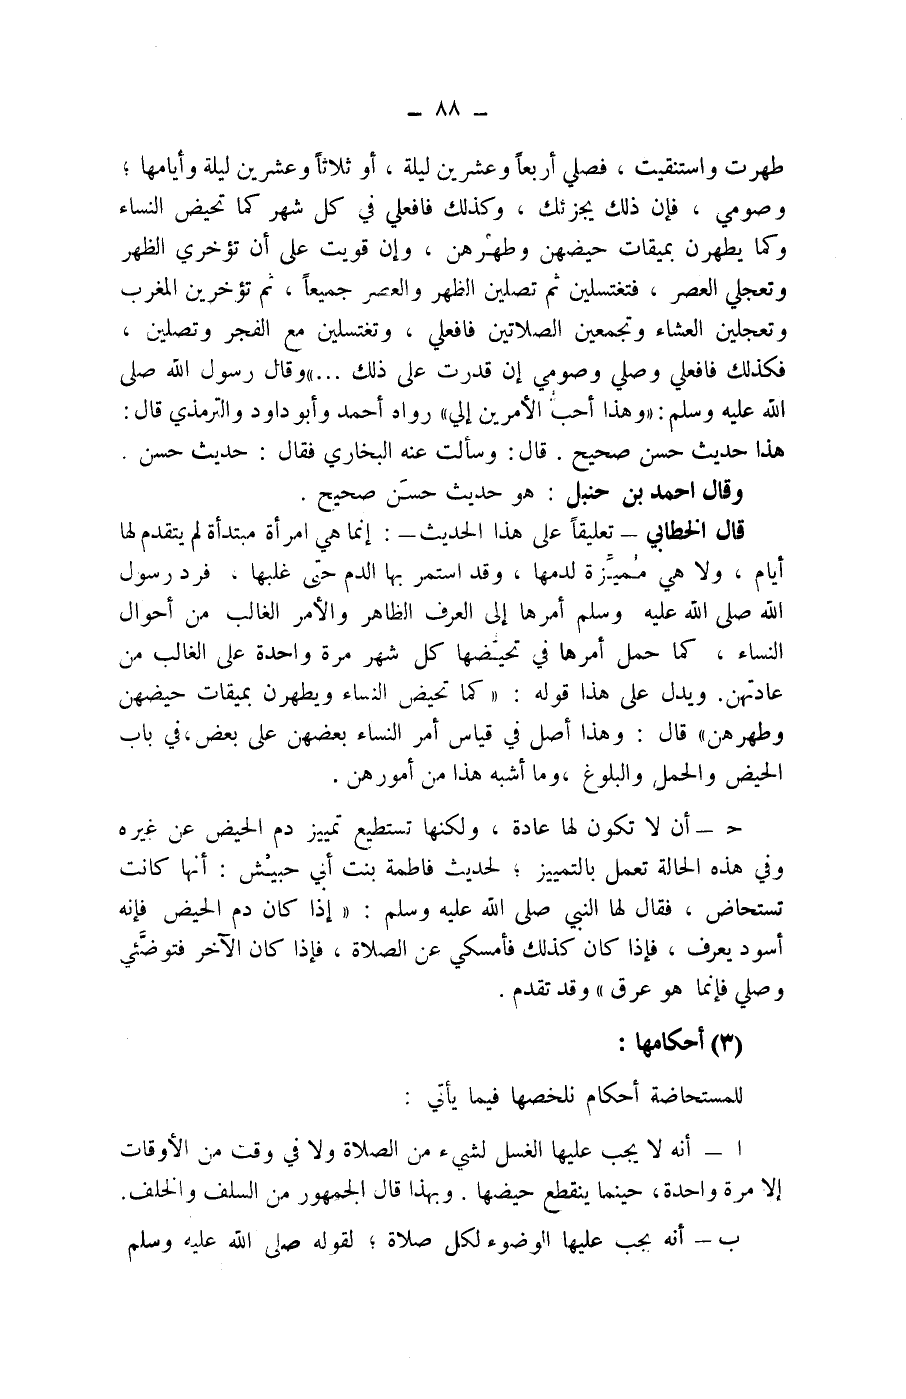 – ٨٨ –
طهرت واستنقيت ، فصلي أربعاً وعشرين ليلة ، أو ثلاثاً وعشرين ليلة وأيامها ؛
وصومي ، فإن ذلك يجزئك ، وكذلك فافعلي في كل شهر كما تحيض النساء
وكما يطهرن بميقات حيضهن وطهْرهن ، وإن قويت على أن تؤخري الظهر
وتعجلي العصر ، فتغتسلين ثم تصلين الظهر والعصر جميعاً ، ثم تؤخرين المغرب
وتعجلين العشاء وتجمعين الصلاتين فافعلي ، وتغتسلين مع الفجر وتصلين ،
فكذلك فافعلي وصلي وصومي إن قدرت على ذلك ...» وقال رسول الله صلى
الله عليه وسلم : «وهذا أحبُّ الأمرين إلي» رواه أحمد وأبو داود والترمذي قال :
هذا حديث حسن صحيح . قال : وسألت عنه البخاري فقال : حديث حسن .
وقال احمد بن حنبل : هو حديث حسَن صحيح .
قال الخطابي – تعليقاً على هذا الحديث – : إنما هي امرأة مبتدأة لم يتقدم لها
أيام ، ولا هي مُميِّزة لدمها ، وقد استمر بها الدم حتى غلبها ، فرد رسول
الله صلى الله عليه وسلم أمرها إلى العرف الظاهر والأمر الغالب من أحوال
النساء ، كما حمل أمرها في تحيّضها كل شهر مرة واحدة على الغالب من
عادتهن. ويدل على هذا قوله : « كما تحيض النساء ويطهرن بميقات حيضهن
وطهرهن» قال : وهذا أصل في قياس أمر النساء بعضهن على بعض، في باب
الحيض والحمل والبلوغ ، وما أشبه هذا من أمورهن .
حـ – أن لا تكون لها عادة ، ولكنها تستطيع تمييز دم الحيض عن غيره
وفي هذه الحالة تعمل بالتمييز ؛ لحديث فاطمة بنت أبي حبيْش : أنها كانت
تستحاض ، فقال لها النبي صلى الله عليه وسلم : « إذا كان دم الحيض فإنه
أسود يعرف ، فإذا كان كذلك فأمسكي عن الصلاة ، فإذا كان الآخر فتوضَّئي
وصلي فإنما هو عرق » وقد تقدم .
(٣) أحكامها :
للمستحاضة أحكام نلخصها فيما يأتي :
ا – أنه لا يجب عليها الغسل لشيء من الصلاة ولا في وقت من الأوقات
إلا مرة واحدة، حينما ينقطع حيضها . وبهذا قال الجمهور من السلف والخلف.
ب – أنه يجب عليها الوضوء لكل صلاة ؛ لقوله صلى الله عليه وسلم